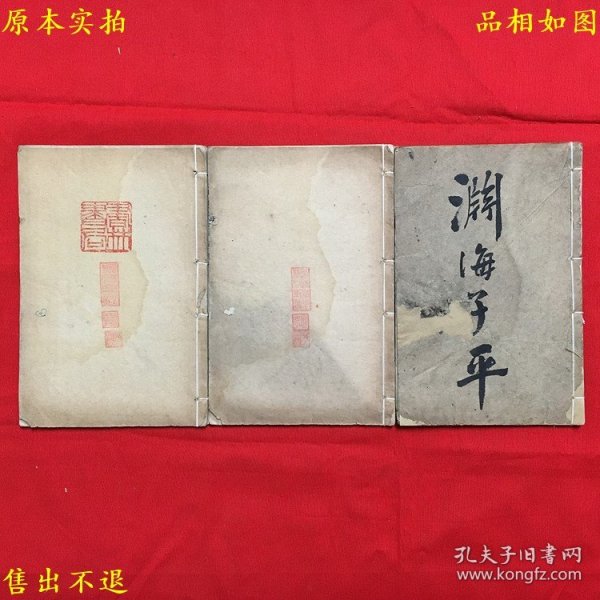 原本实拍
品相如图
渊海子平
售出不退
孔夫子旧書网
www.kongfz.com